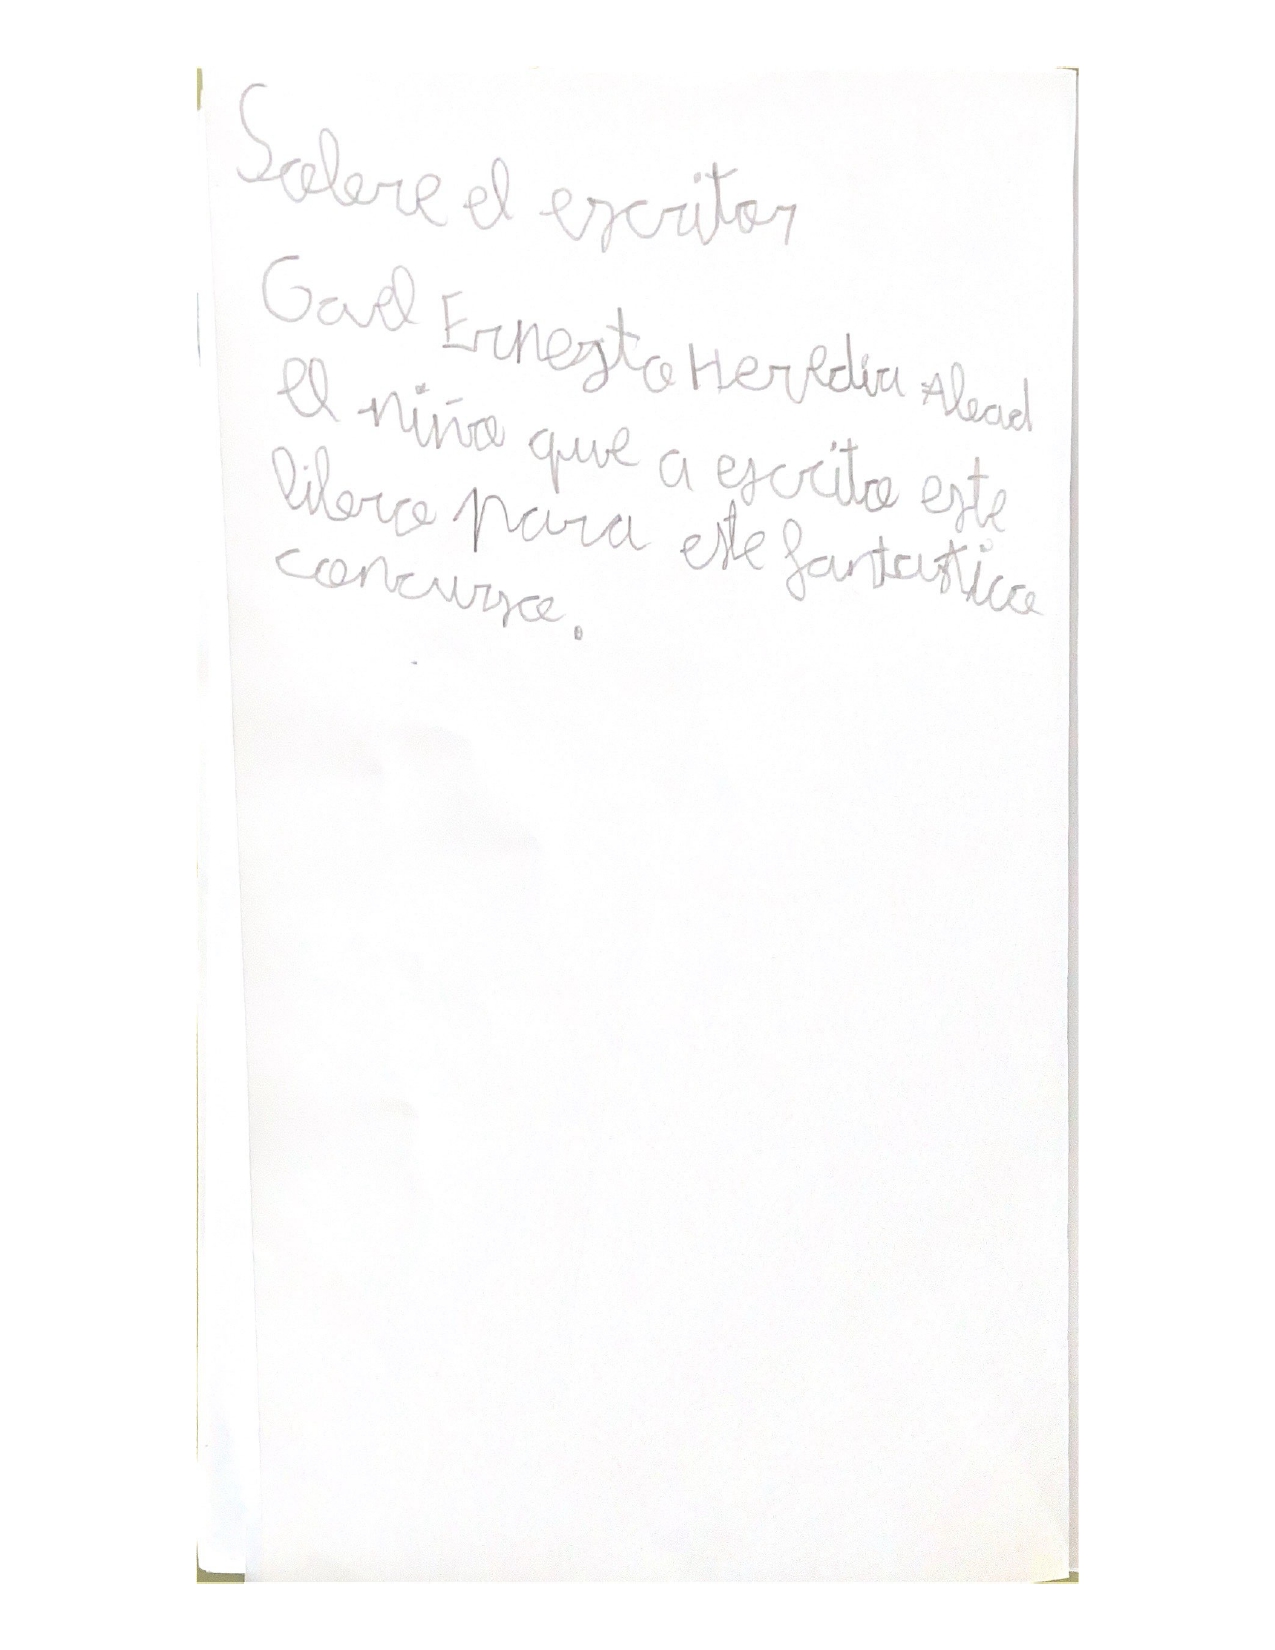 Sobre el escritor
Gael Ernesto Heredia Alead
El niño que a escrito este
libro para este fantastico
concurso.